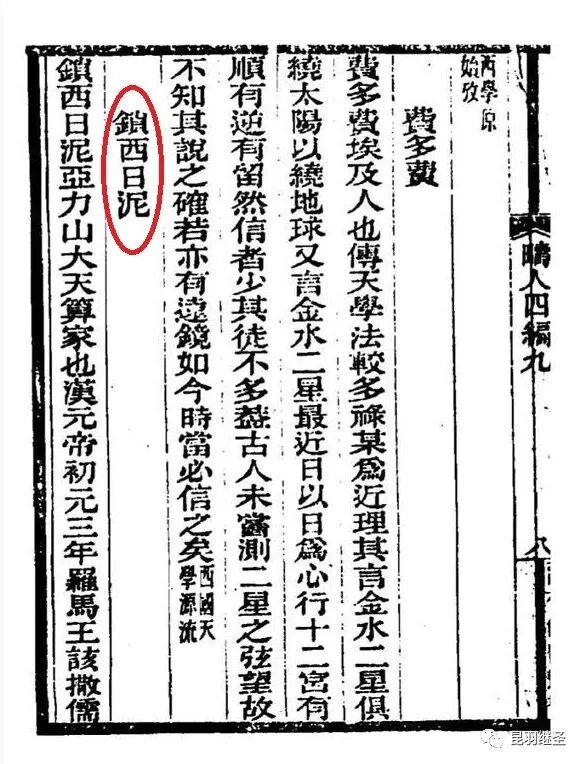 疇人四編九
八
西學原
始攷
費多費
費多費埃及人也傳天學法較多祿某爲近理其言金水二星俱
繞太陽以繞地球又言金水二星最近日以日爲心行十二宮有
順有逆有留然信者少其徒不多葢古人未嘗測二星之弦望故
不知其說之確若亦有遠鏡如今時當必信之矣西國天學源流
鎖西日泥
鎖西日泥亞力山大天算家也漢元帝初元三年羅馬王該撒儒
昆羽继圣